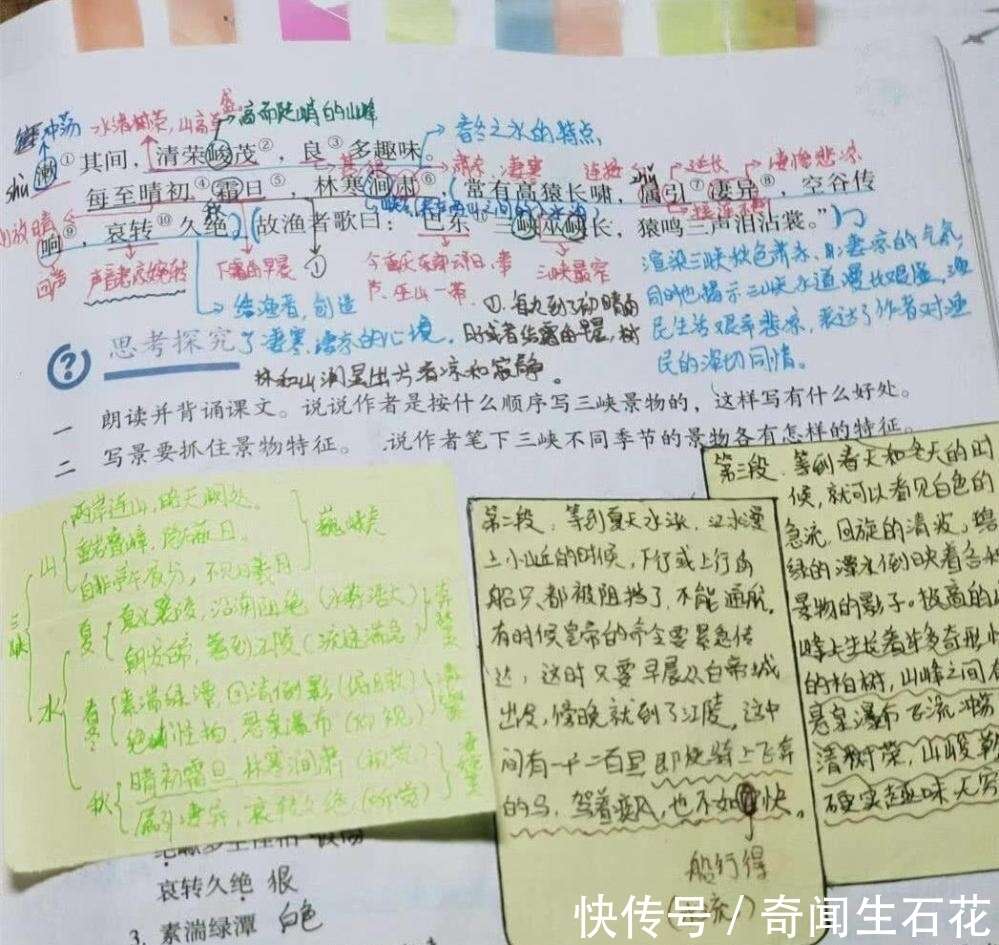 冲荡 水清树荣,山高 高而陡峭的山峰
春冬之水的特点
shù
漱①其间,清荣峻茂②,良③多趣味。
凄寒 连接 延长 凄惨悲凉
每至晴初④霜旦⑤,林寒涧肃⑥,常有高猿长啸,属引⑦凄异⑧,空谷传
响⑨,哀转⑩久绝。故渔者歌曰:“巴东三峡巫峡长,猿鸣三声泪沾裳。”
放晴
回声 下霜的早晨 ① 三峡最窄
①.每次到了初晴的
时候或者结霜的早晨,树
林和山涧显出一片清凉和寂静。
渲染三峡秋色肃杀、凄凉的气氛,
同时也揭示三峡水道漫长艰险,渔
民生活艰辛悲凉,表达了作者对渔
民的深切同情。
给渔者,创造
了凄寒、凄凉的心境。
思考探究
一 朗读并背诵课文。说说作者是按什么顺序写三峡景物的,这样写有什么好处。
二 写景要抓住景物特征。 说作者笔下三峡不同季节的景物各有怎样的特征。
三峡
山
两岸连山,略无阙处。
重岩叠嶂,隐天蔽日。
自非亭午夜分,不见曦月
水
夏
夏水襄陵,沿溯阻绝(水势浩大)
朝发白帝,暮到江陵(流速湍急)
春冬
素湍绿潭,回清倒影(俯视)
绝巘怪柏,悬泉瀑布(仰视)
秋
晴初霜旦,林寒涧肃(视觉)
属引凄异,哀转久绝(听觉)
第二段:等到夏天水涨,江水漫
上小山丘的时候,下行或上行的
船只都被阻挡了,不能通航。
有时候皇帝的命令要紧急传
达,这时只要早晨从白帝城
出发,傍晚就到了江陵,这中
间有一千二百里,即使骑上飞奔
的马,驾着疾风,也不如它快。
船行得
第三段:等到春天和冬天的时
候,就可以看见白色的
急流,回旋的清波,碧
绿的潭水倒映着各种
景物的影子。极高的山
峰上生长着许多奇形怪
的柏树,山峰之间有
悬泉瀑布飞流冲荡
清树荣,山峻
趣味无穷
哀转久绝 很
3. 素湍绿潭 白色
快传号 / 奇闻生石花